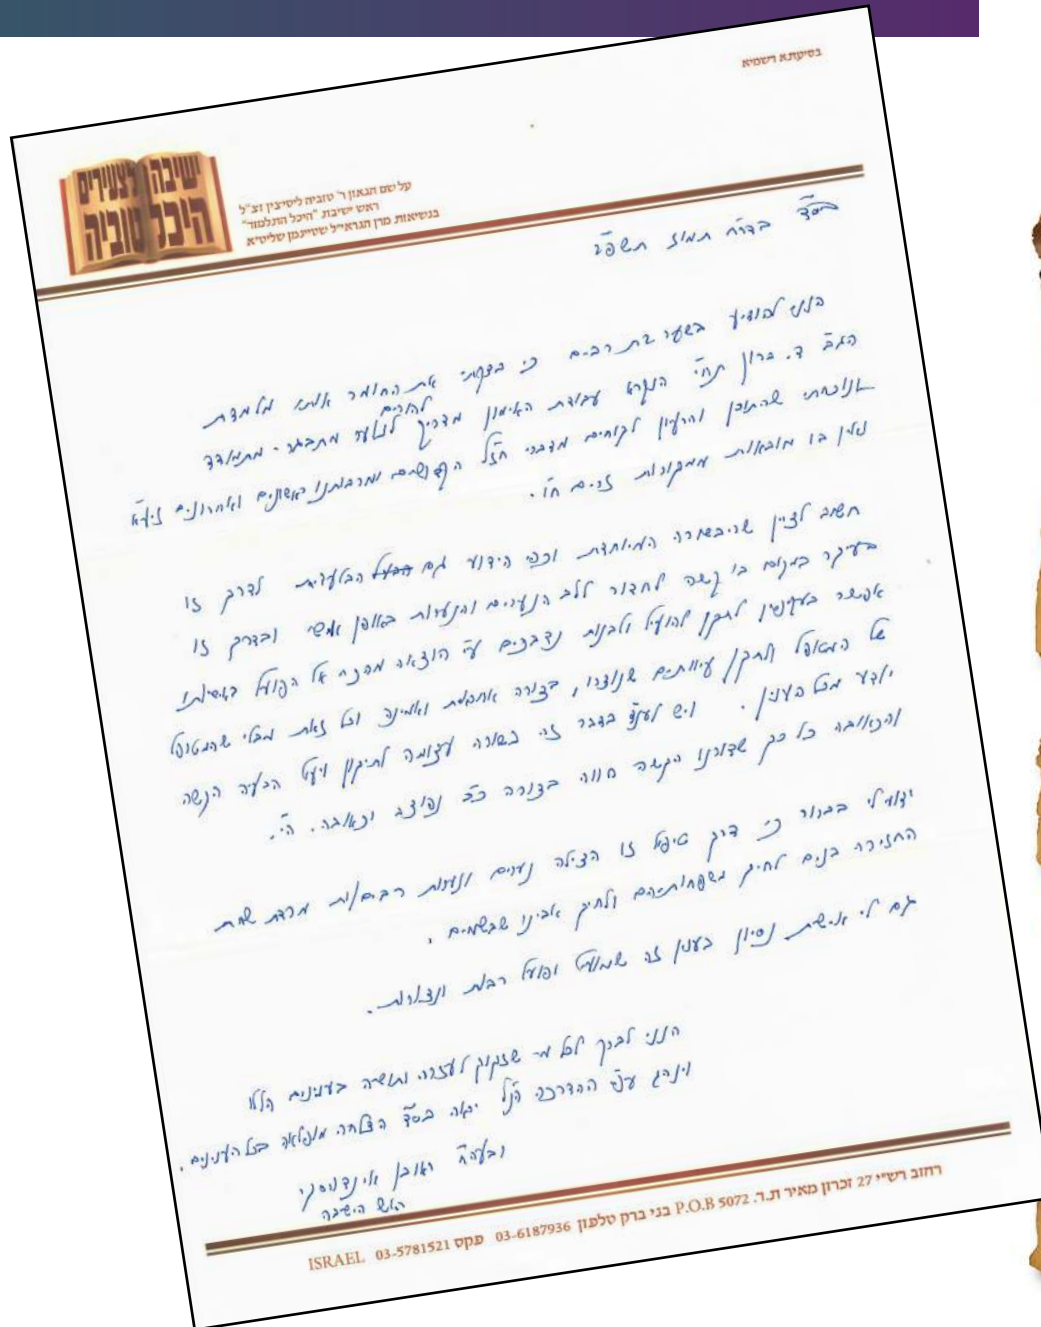 בסיעתא דשמיא
ישיבה לצעירים
היכל טוביה
על שם הגאון ר' טוביה ליסיצין זצ"ל
ראש ישיבת "היכל התלמוד"
בנשיאות מרן הגראי"ל שטיינמן שליט"א
בס"ד בדר"ח תמוז
הנני להודיע בשער בת רבים כי בדקתי את החומר אותו מלמדת
הגב' ד. ברון תחי' הנקרא עבודת האימון מדריך להורים לנוער מתבגר - מתמודד
שהתוכן והרעיון לקוחים מדברי חז"ל הקדושים ומרבותנו ראשונים ואחרונים זיע"א
ואין בו מובאות ממקורות זרים ח"ו.
חשוב לציין שהבשורה המיוחדת וכפי הידוע גם הבלעדית לדרך זו
בעיקר במקום בו קשה לחדור ללב הנערים והנערות באופן אישי ובדרך זו
אפשר בעקיפין לתקן להועיל ולבנות נדבכים ע"י הוצאה מהכח אל הפועל באישיותו
של המטופל ולתקן עיוותים שנוצרו, בצורה אוהבת ואמינה וכל זאת מבלי שהמטופל
יודע מכל הענין. ויש בדבר זה בשורה עצומה לתיקון הבעיה הקשה
והכאובה כל כך שדורנו הקשה חווה בצורה כ"כ נפוצה וכאובה. ה"י.
ידוע לי בברור כי דרך טיפול זו הצילה נערים ונערות רבים/ות מרדת שחת
החזירה בנים לחיק משפחותיהם ולחיק אבינו שבשמים.
גם לי אישית נסיון בענין זה שמועיל ופועל רבות ונצורות.
הנני לברך לכל מי שזקוק לעזרה ותושיה בענינים הללו
וינהג עפ"י ההדרכה הנ"ל יראה בס"ד הצלחה מופלאה בכל הענינים.
ובעה"ח ראובן
ראש הישיבה
רחוב רש"י 27 זכרון מאיר ת.ד. P.O.B 5072 בני ברק טלפון 03-6187936 פקס 03-5781521 ISRAEL